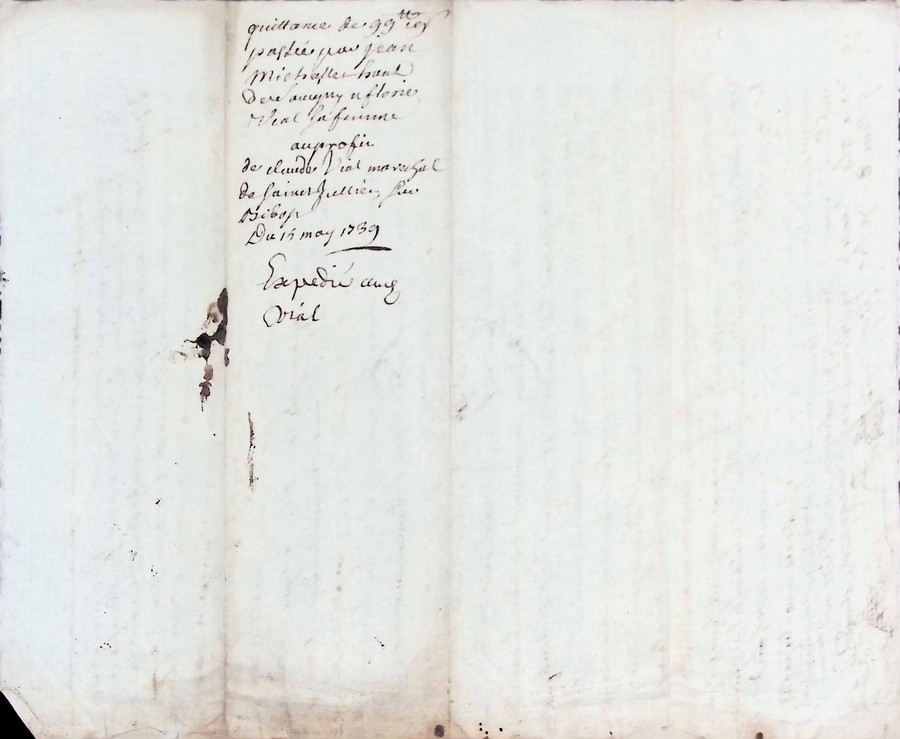 quittance de 99ᵗᵗ
passée par jean
Michel
De Savigny
Vial sa femme
au profit
de claude Vial mareschal
de Saint Jullien sur
Bibost
Du 15 may 1739
Expedié aud
Vial